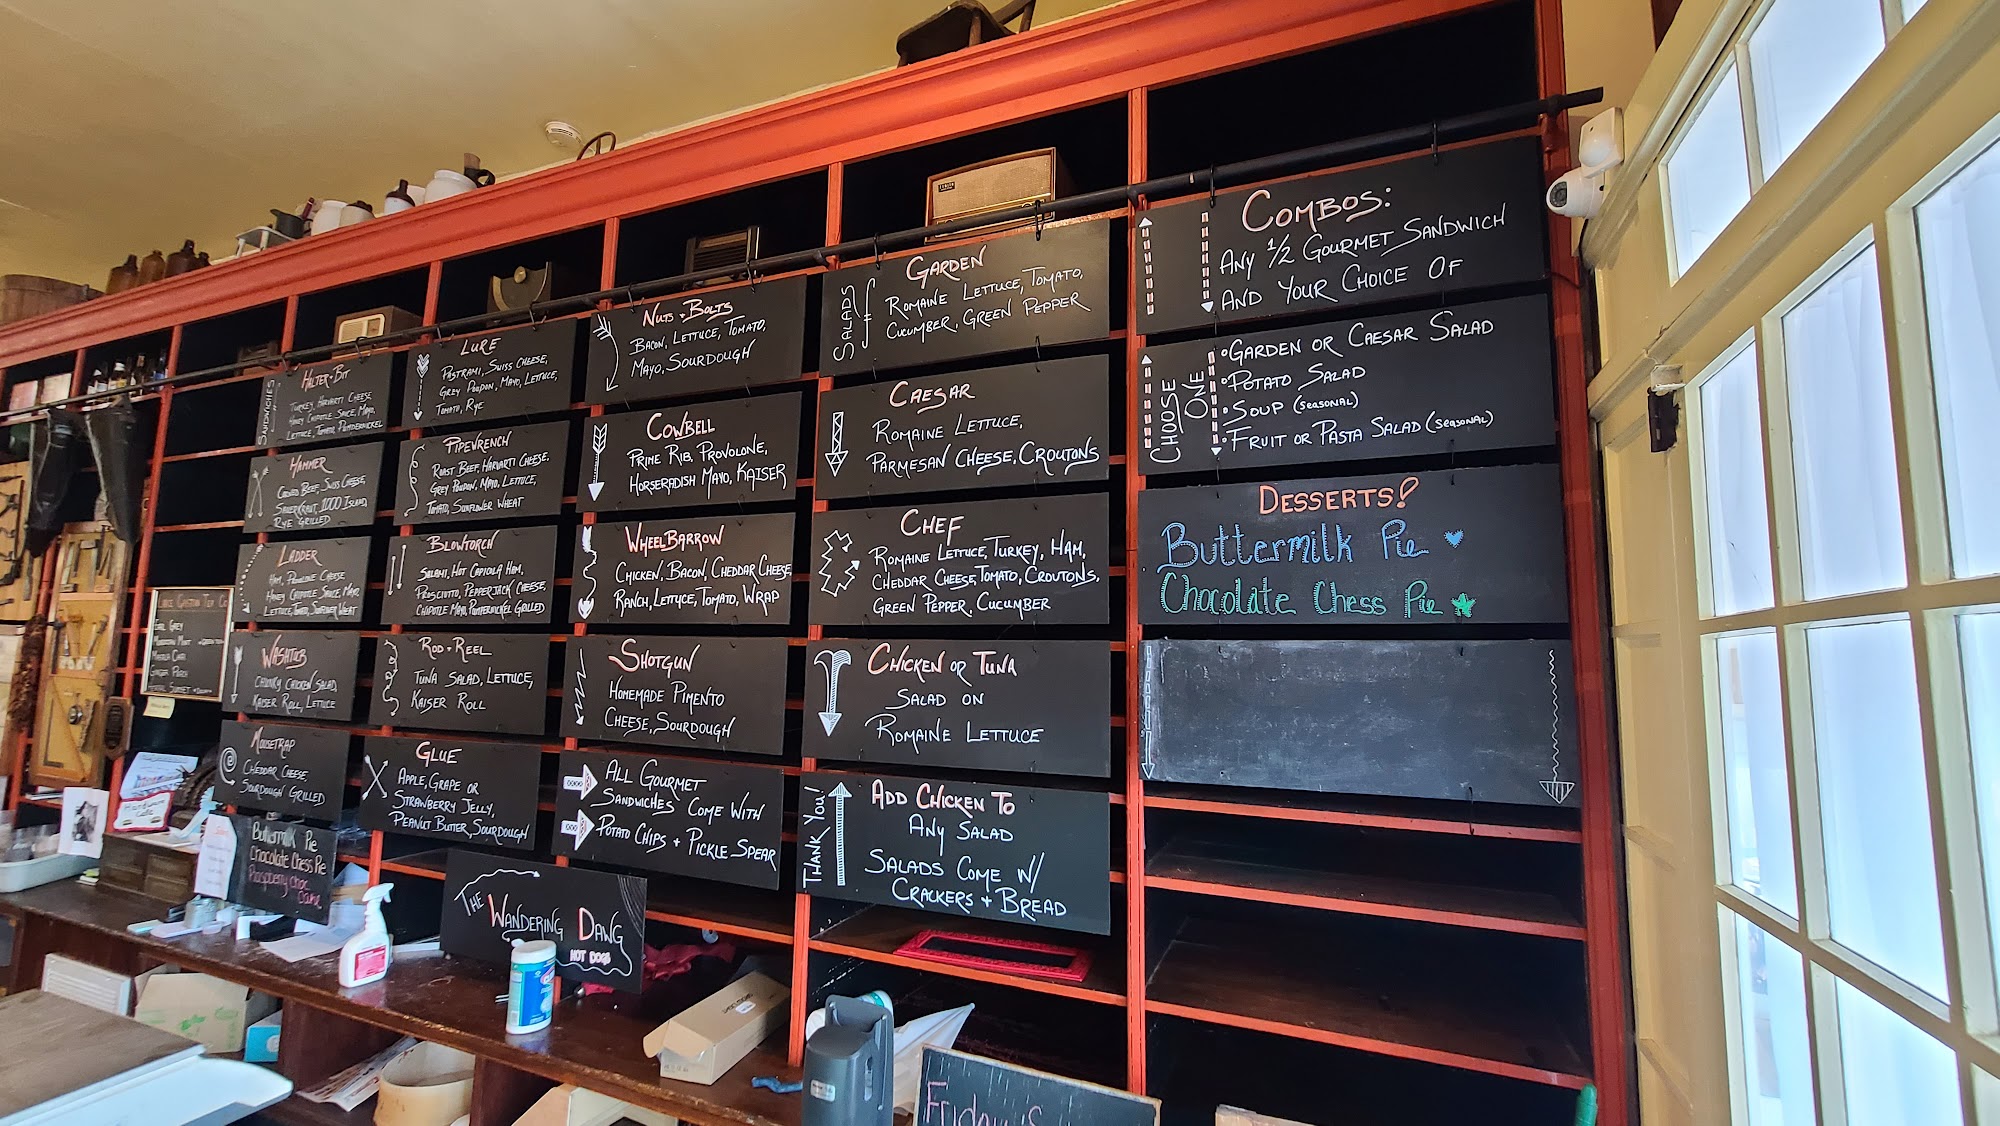 SANDWICHES
HALTER + BIT
TURKEY, HAVARTI CHEESE
HONEY CHIPOTLE SAUCE, MAYO,
LETTUCE, TOMATO, PUMPERNICKEL
HAMMER
CORNED BEEF, SWISS CHEESE,
SAUERKRAUT, 1000 ISLAND,
RYE GRILLED
LADDER
HAM, PROVOLONE CHEESE
HONEY CHIPOTLE SAUCE, MAYO
LETTUCE, TOMATO, SUNFLOWER WHEAT
WASHTUB
CHUNKY CHICKEN SALAD,
KAISER ROLL, LETTUCE
MOUSETRAP
CHEDDAR CHEESE,
SOURDOUGH GRILLED
LURE
PASTRAMI, SWISS CHEESE,
GREY POUPON, MAYO, LETTUCE,
TOMATO, RYE
PIPEWRENCH
ROAST BEEF, HAVARTI CHEESE,
GREY POUPON, MAYO, LETTUCE,
TOMATO, SUNFLOWER WHEAT
BLOWTORCH
SALAMI, HOT CAPIOLA HAM,
PROSCIUTTO, PEPPERJACK CHEESE,
CHIPOTLE MAYO, PUMPERNICKEL GRILLED
ROD + REEL
TUNA SALAD, LETTUCE,
KAISER ROLL
GLUE
APPLE, GRAPE OR
STRAWBERRY JELLY,
PEANUT BUTTER, SOURDOUGH
NUTS + BOLTS
BACON, LETTUCE, TOMATO,
MAYO, SOURDOUGH
COWBELL
PRIME RIB, PROVOLONE,
HORSERADISH MAYO, KAISER
WHEELBARROW
CHICKEN, BACON, CHEDDAR CHEESE,
RANCH, LETTUCE, TOMATO, WRAP
SHOTGUN
HOMEMADE PIMENTO
CHEESE, SOURDOUGH
ALL GOURMET
SANDWICHES COME WITH
POTATO CHIPS + PICKLE SPEAR
SALADS
GARDEN
ROMAINE LETTUCE, TOMATO,
CUCUMBER, GREEN PEPPER
CAESAR
ROMAINE LETTUCE,
PARMESAN CHEESE, CROUTONS
CHEF
ROMAINE LETTUCE, TURKEY, HAM,
CHEDDAR CHEESE, TOMATO, CROUTONS,
GREEN PEPPER, CUCUMBER
CHICKEN OR TUNA
SALAD ON
ROMAINE LETTUCE
THANK YOU!
ADD CHICKEN TO
ANY SALAD
SALADS COME W/
CRACKERS + BREAD
COMBOS:
ANY 1/2 GOURMET SANDWICH
AND YOUR CHOICE OF
CHOOSE
ONE
•GARDEN OR CAESAR SALAD
•POTATO SALAD
•SOUP (SEASONAL)
•FRUIT OR PASTA SALAD (SEASONAL)
DESSERTS!
Buttermilk Pie
Chocolate Chess Pie
EARL GREY
MASALA CHAI
GINGER PEACH
Buttermilk Pie
Chocolate Chess Pie
Raspberry Choc
Cake
THE
WANDERING DAWG
HOT DOGS
FRIDAY'S